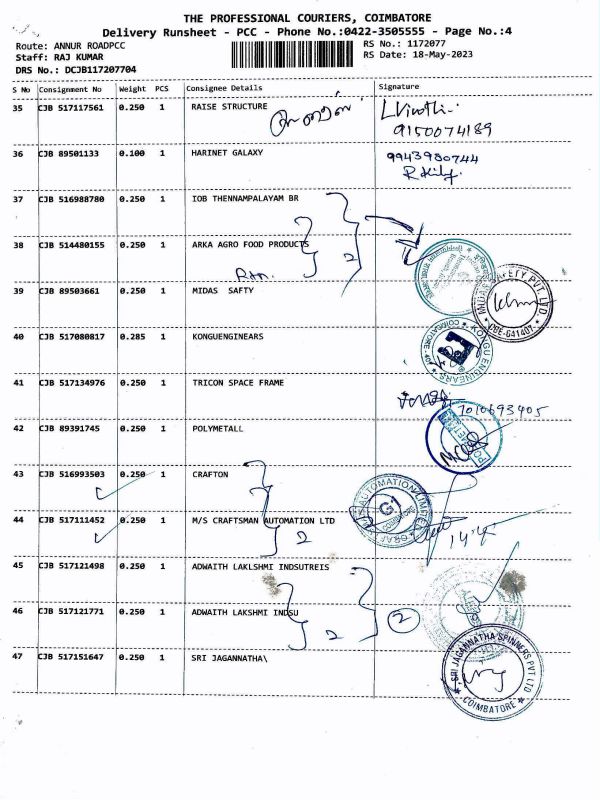 THE PROFESSIONAL COURIERS, COIMBATORE
Delivery Runsheet - PCC - Phone No.:0422-3505555 - Page No.:4
Route: ANNUR ROADPCC
RS No.: 1172077
Staff: RAJ KUMAR
RS Date: 18-May-2023
DRS No.: DCJB117207704
S No Consignment No Weight PCS Consignee Details Signature
35 CJB 517117561 0.250 1 RAISE STRUCTURE
9150074189
36 CJB 89501133 0.100 1 HARINET GALAXY 9943980744
37 CJB 516988780 0.250 1 IOB THENNAMPALAYAM BR
38 CJB 514480155 0.250 1 ARKA AGRO FOOD PRODUCTS 2
39 CJB 89503661 0.250 1 MIDAS SAFTY
MIDAS SAFETY PVT. LTD. * CBE-641407 *
40 CJB 517080817 0.285 1 KONGUENGINEARS
KONGU ENGINEARS * COIMBATORE
41 CJB 517134976 0.250 1 TRICON SPACE FRAME
7010693405
42 CJB 89391745 0.250 1 POLYMETALL
43 CJB 516993503 0.250 1 CRAFTON
AUTOMATION LIMITED
G1
COIMBATORE
44 CJB 517111452 0.250 1 M/S CRAFTSMAN AUTOMATION LTD
2
45 CJB 517121498 0.250 1 ADWAITH LAKLSHMI INDSUTREIS
46 CJB 517121771 0.250 1 ADWAITH LAKLSHMI INDSU 2 2 2
47 CJB 517151647 0.250 1 SRI JAGANNATHA\
SRI JAGANNATHA SPINNERS PVT LTD * COIMBATORE *